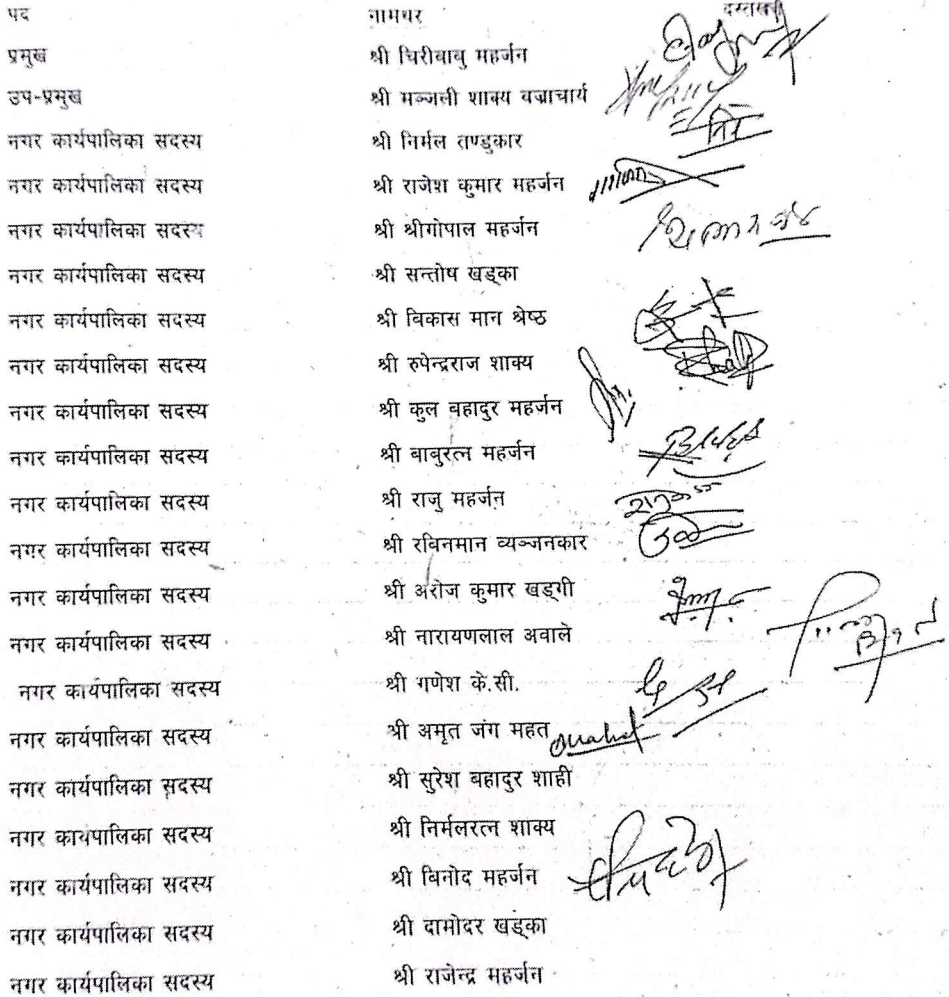 पद नामथर दस्तखत
प्रमुख श्री चिरीबाबु महर्जन
उप-प्रमुख श्री मञ्जली शाक्य बज्राचार्य
नगर कार्यपालिका सदस्य श्री निर्मल तण्डुकार
नगर कार्यपालिका सदस्य श्री राजेश कुमार महर्जन
नगर कार्यपालिका सदस्य श्री श्रीगोपाल महर्जन
नगर कार्यपालिका सदस्य श्री सन्तोष खड्का
नगर कार्यपालिका सदस्य श्री बिकास मान श्रेष्ठ
नगर कार्यपालिका सदस्य श्री रुपेन्द्रराज शाक्य
नगर कार्यपालिका सदस्य श्री कुल बहादुर महर्जन
नगर कार्यपालिका सदस्य श्री बाबुरत्न महर्जन
नगर कार्यपालिका सदस्य श्री राजु महर्जन
नगर कार्यपालिका सदस्य श्री रबिनमान ब्यञ्जनकार
नगर कार्यपालिका सदस्य श्री अरोज कुमार खड्गी
नगर कार्यपालिका सदस्य श्री नारायणलाल अवाले
नगर कार्यपालिका सदस्य श्री गणेश के.सी.
नगर कार्यपालिका सदस्य श्री अमृत जंग महत
नगर कार्यपालिका सदस्य श्री सुरेश बहादुर शाही
नगर कार्यपालिका सदस्य श्री निर्मलरत्न शाक्य
नगर कार्यपालिका सदस्य श्री बिनोद महर्जन
नगर कार्यपालिका सदस्य श्री दामोदर खड्का
नगर कार्यपालिका सदस्य श्री राजेन्द्र महर्जन